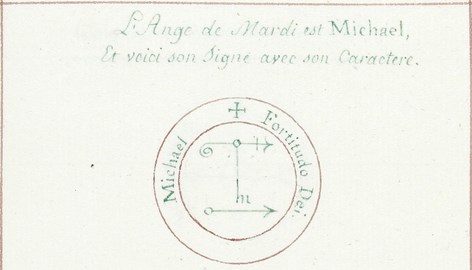 L'Ange de Mardi est Michael,
Et voici son Signe avec son Caractere.
Michael ✠ Fortitudo Dei.
m